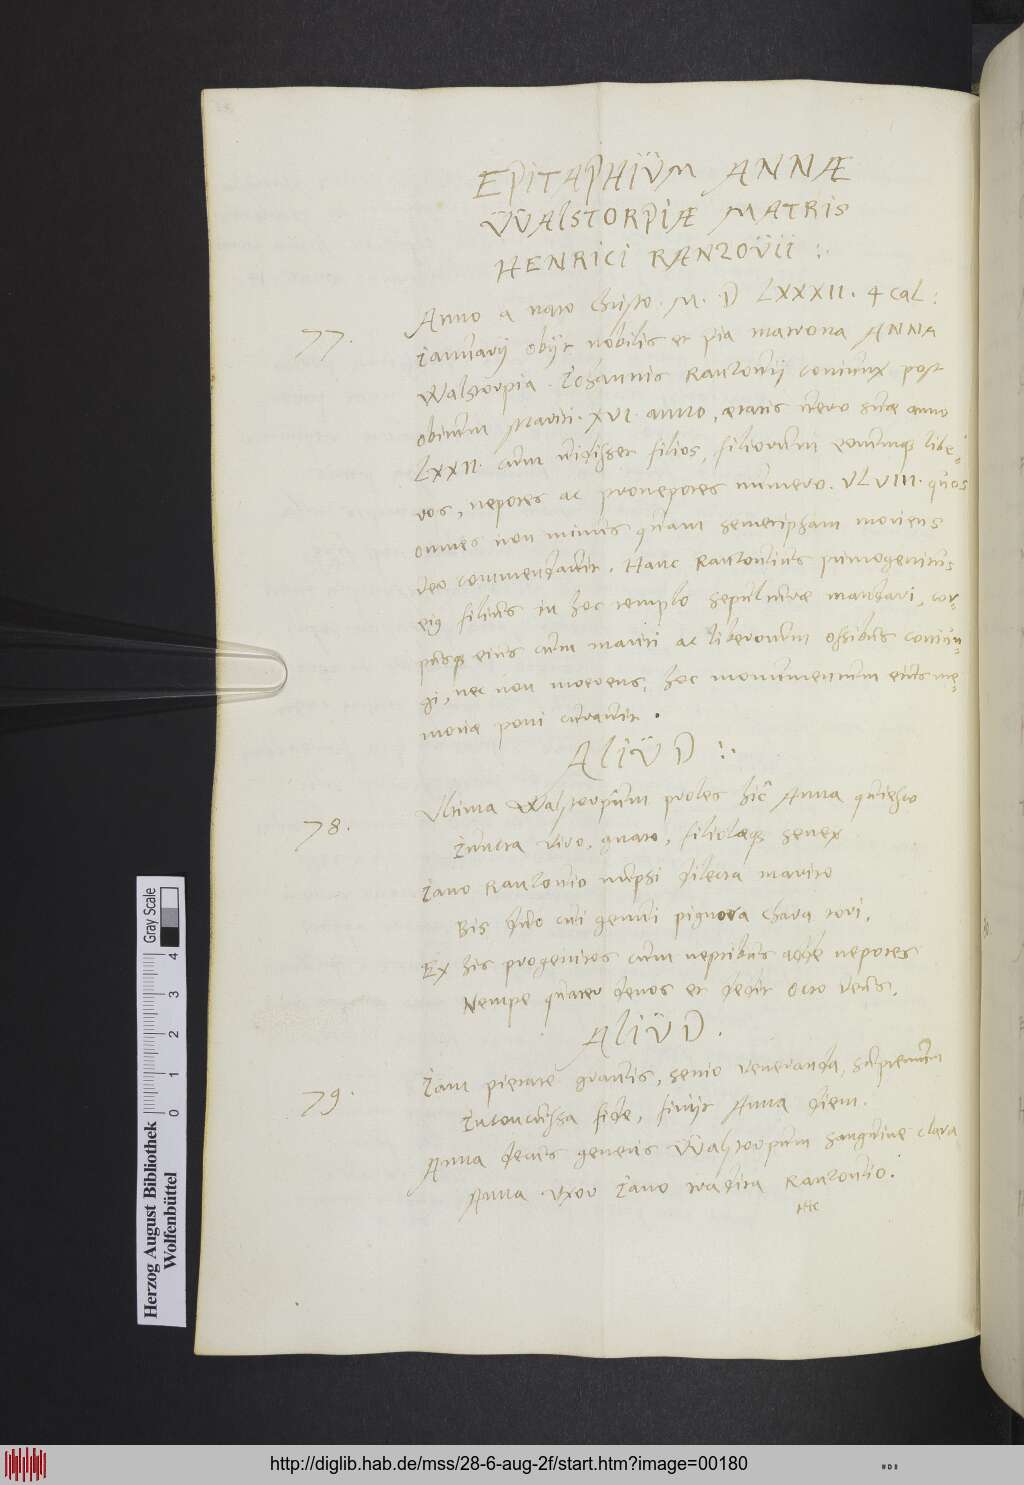 EPITAPHIÜM ANNÆ
ÜÜALSTORPIÆ MATRIS
HENRICI RANZOÜII :.
77. Anno a nato Christo. M. D LXXXII. 4 Cal:
Januarij obijt nobilis et pia matrona ANNA
Walstorpia. Johannis Ranzouij coniunx post
obitum Mariti. XVI. anno, ætatis vero suæ anno
LXXII. cum uidisset filios, filiorum eorumq; libe=
ros, nepotes ac pronepotes numero. VLVIII. quos
omnes non minus quam semetipsam moriens
deo commendauit. Hanc Ranzouius primogenitus
eiq filius in hoc templo sepulturæ mandari, cor=
pusq; eius cum mariti ac liberorum ossibus coniun=
gi, nec non moerens, hoc monumentum eius me=
moriæ poni curauit.
ALIÜD :.
78. Ultima Walstorpum proles hîc Anna quiesco
Juncta viro, gnato, filiolæq; senex
Jano Ranzouio nupsi dilecta marito
Bis duo cui genui pignora chara tori.
Ex his progenitos cum neptibus adde nepotes
Nempe quater denos et dedit octo Deus.
ALIÜD.
79. Jam pietate grauis, senio veneranda, supremum
Inconcussa fide, finijt Anna diem.
Anna decus generis Walstorpum sanguine clara
Anna uxor Jano tradita Ranzouio.
Herzog August Bibliothek
Wolfenbüttel
Gray Scale
0 1 2 3 4
http://diglib.hab.de/mss/28-6-aug-2f/start.htm?image=00180